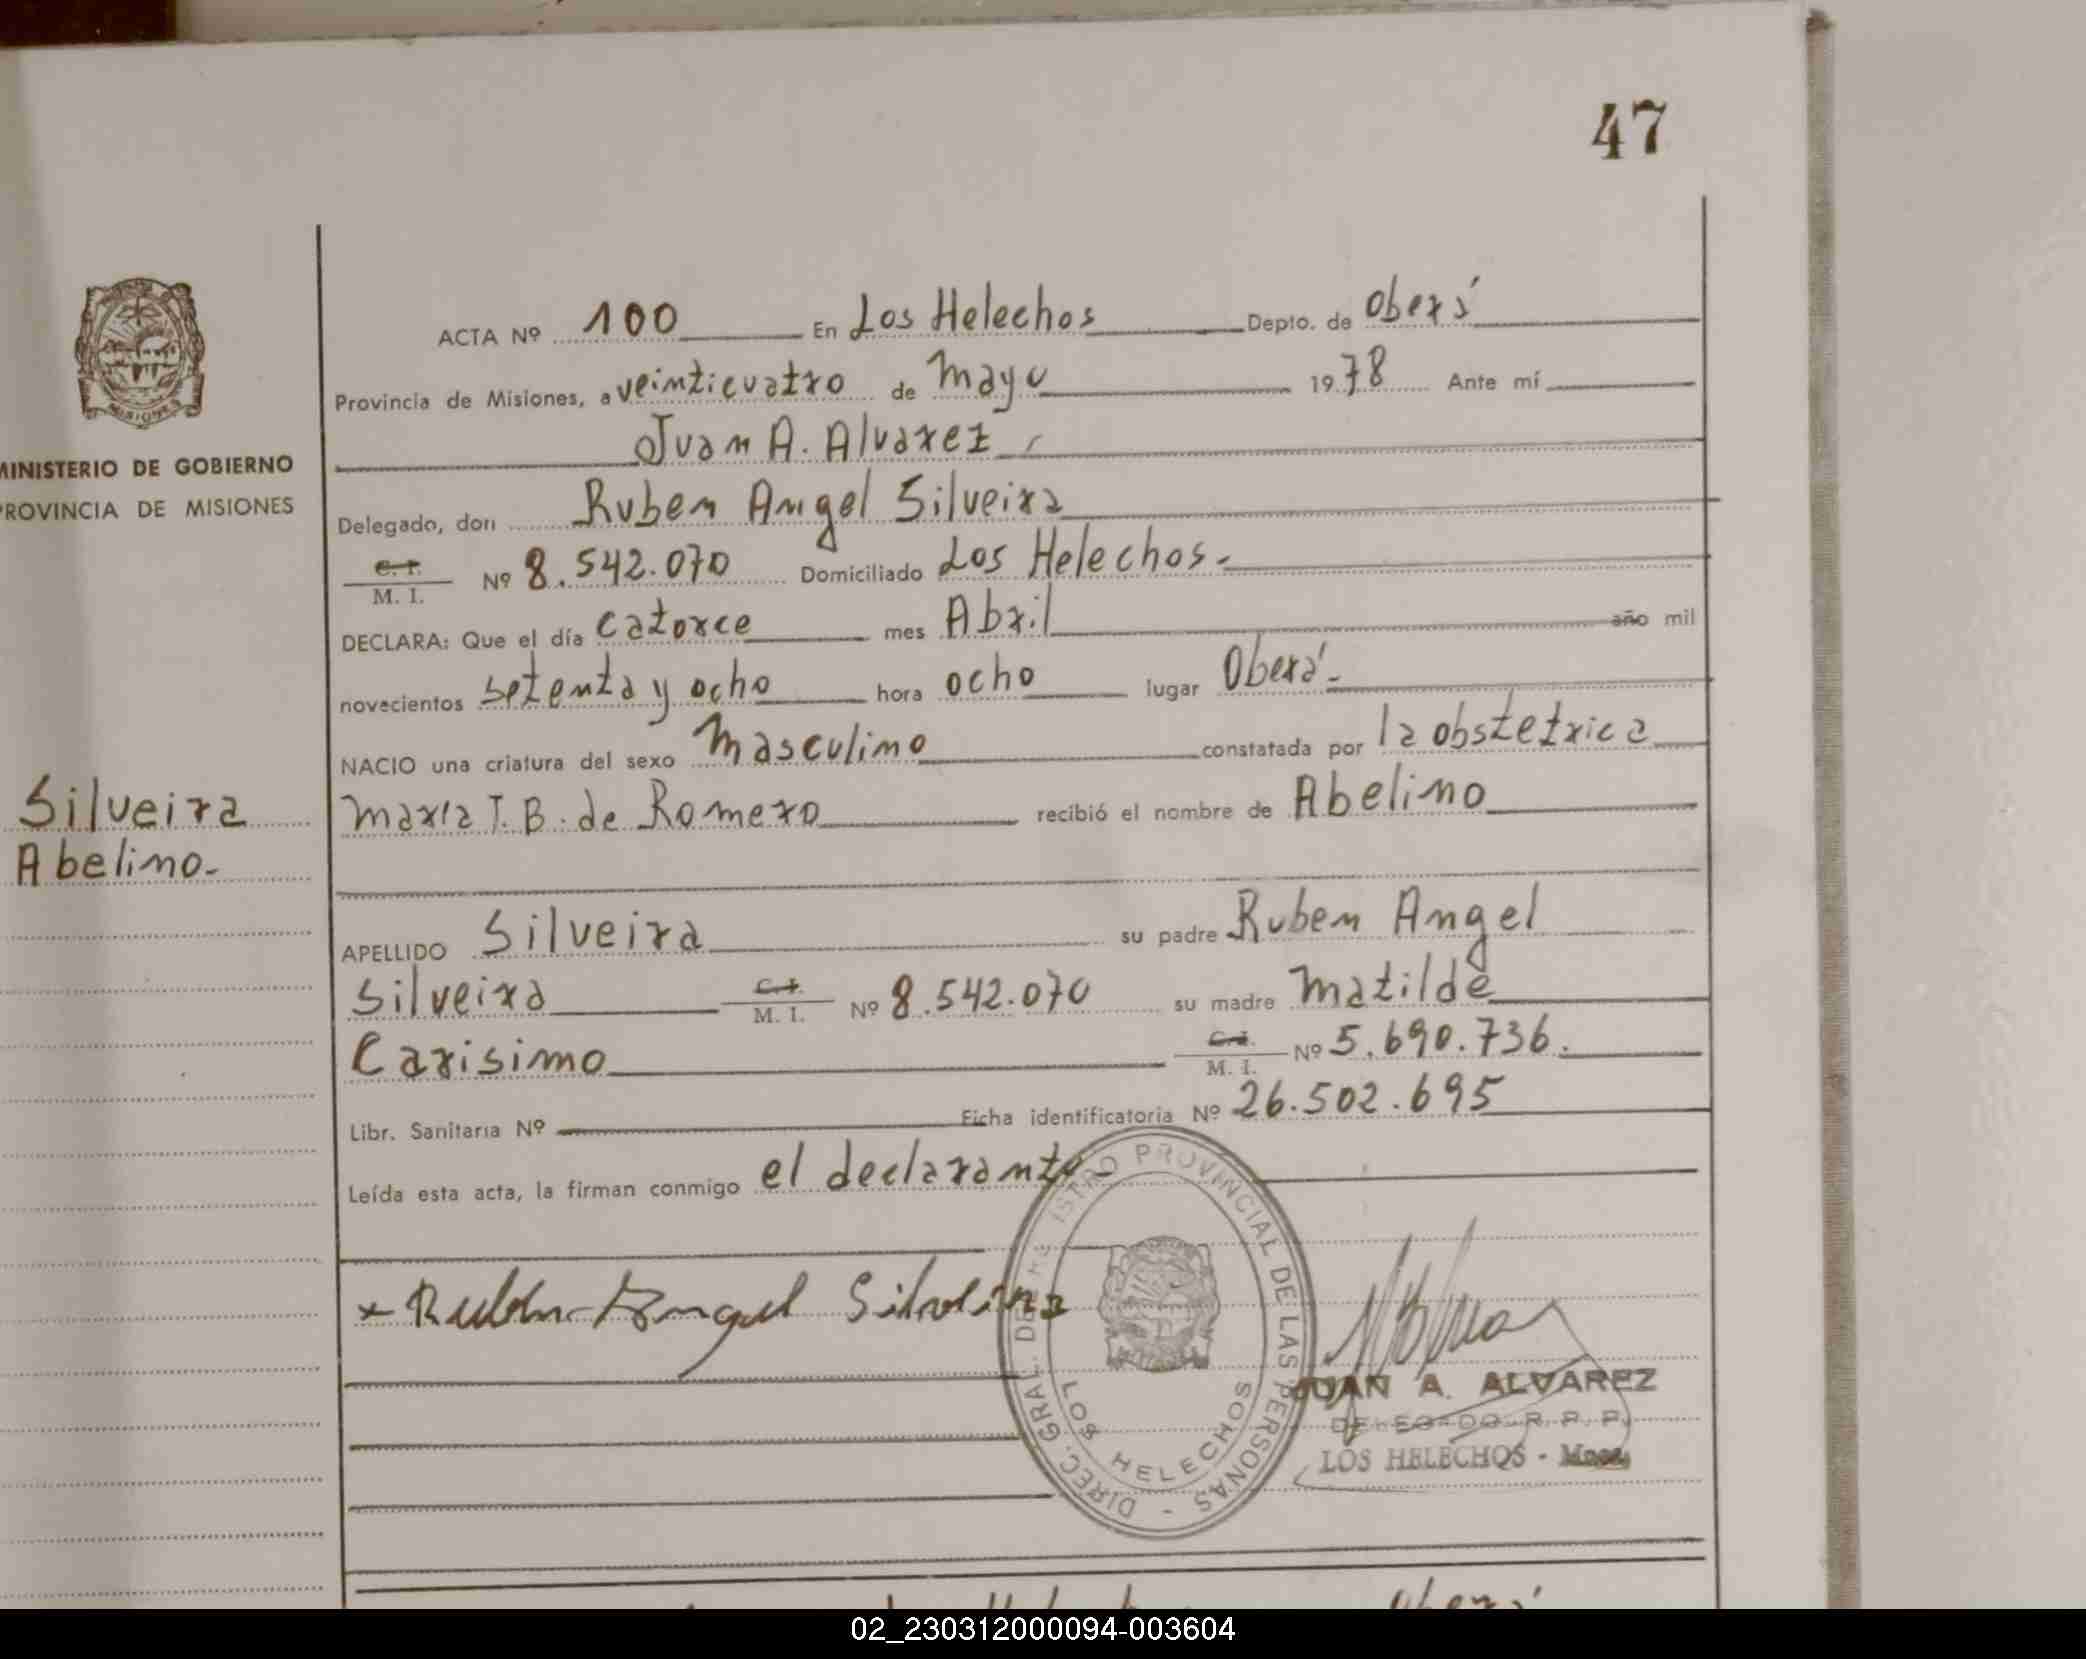 47
ACTA Nº 100 En Los Helechos Depto. de Oberá
Provincia de Misiones, a veinticuatro de Mayo 1978 Ante mí
Juan A. Alvarez
MINISTERIO DE GOBIERNO
PROVINCIA DE MISIONES
Delegado, don Ruben Angel Silveira
C. I.
M. I. Nº 8.542.070 Domiciliado Los Helechos.-
DECLARA: Que el día catorce mes Abril año mil
novecientos setenta y ocho hora ocho lugar Oberá.-
NACIO una criatura del sexo Masculino constatada por la obstetrica
Silveira
Abelino.-
Maria T. B. de Romero recibió el nombre de Abelino
APELLIDO Silveira su padre Ruben Angel
Silveira C. I. M. I. Nº 8.542.070 su madre Matilde
Carisimo C. I. M. I. Nº 5.690.736.
Libr. Sanitaria Nº Ficha identificatoria Nº 26.502.695
Leída esta acta, la firman conmigo el declarante.-
x Ruben Angel Silveira
DIREC. GRAL. DEL REGISTRO PROVINCIAL DE LAS PERSONAS -
LOS HELECHOS
JUAN A. ALVAREZ
DELEGADO R. P. P.
LOS HELECHOS - Mnes.
02_230312000094-003604